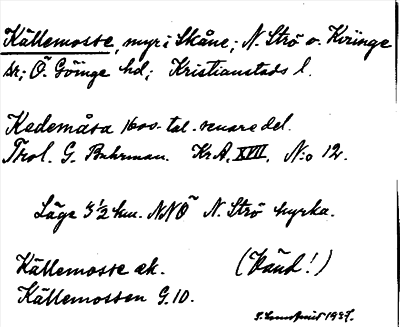 Källemosse, myr i Skåne; N. Strö o. Kviinge
sr; Ö. Göinge hd; Kristianstads l.
Kedemåsa 1600-tal. senare del.
Trol. G. Buhrman. Kr.A. XVII, N:o 12.
Läge 3 1/2 km. NNÖ N. Strö kyrka.
Källemosse ek. (Vänd!)
Källemossen G.10.
1937.